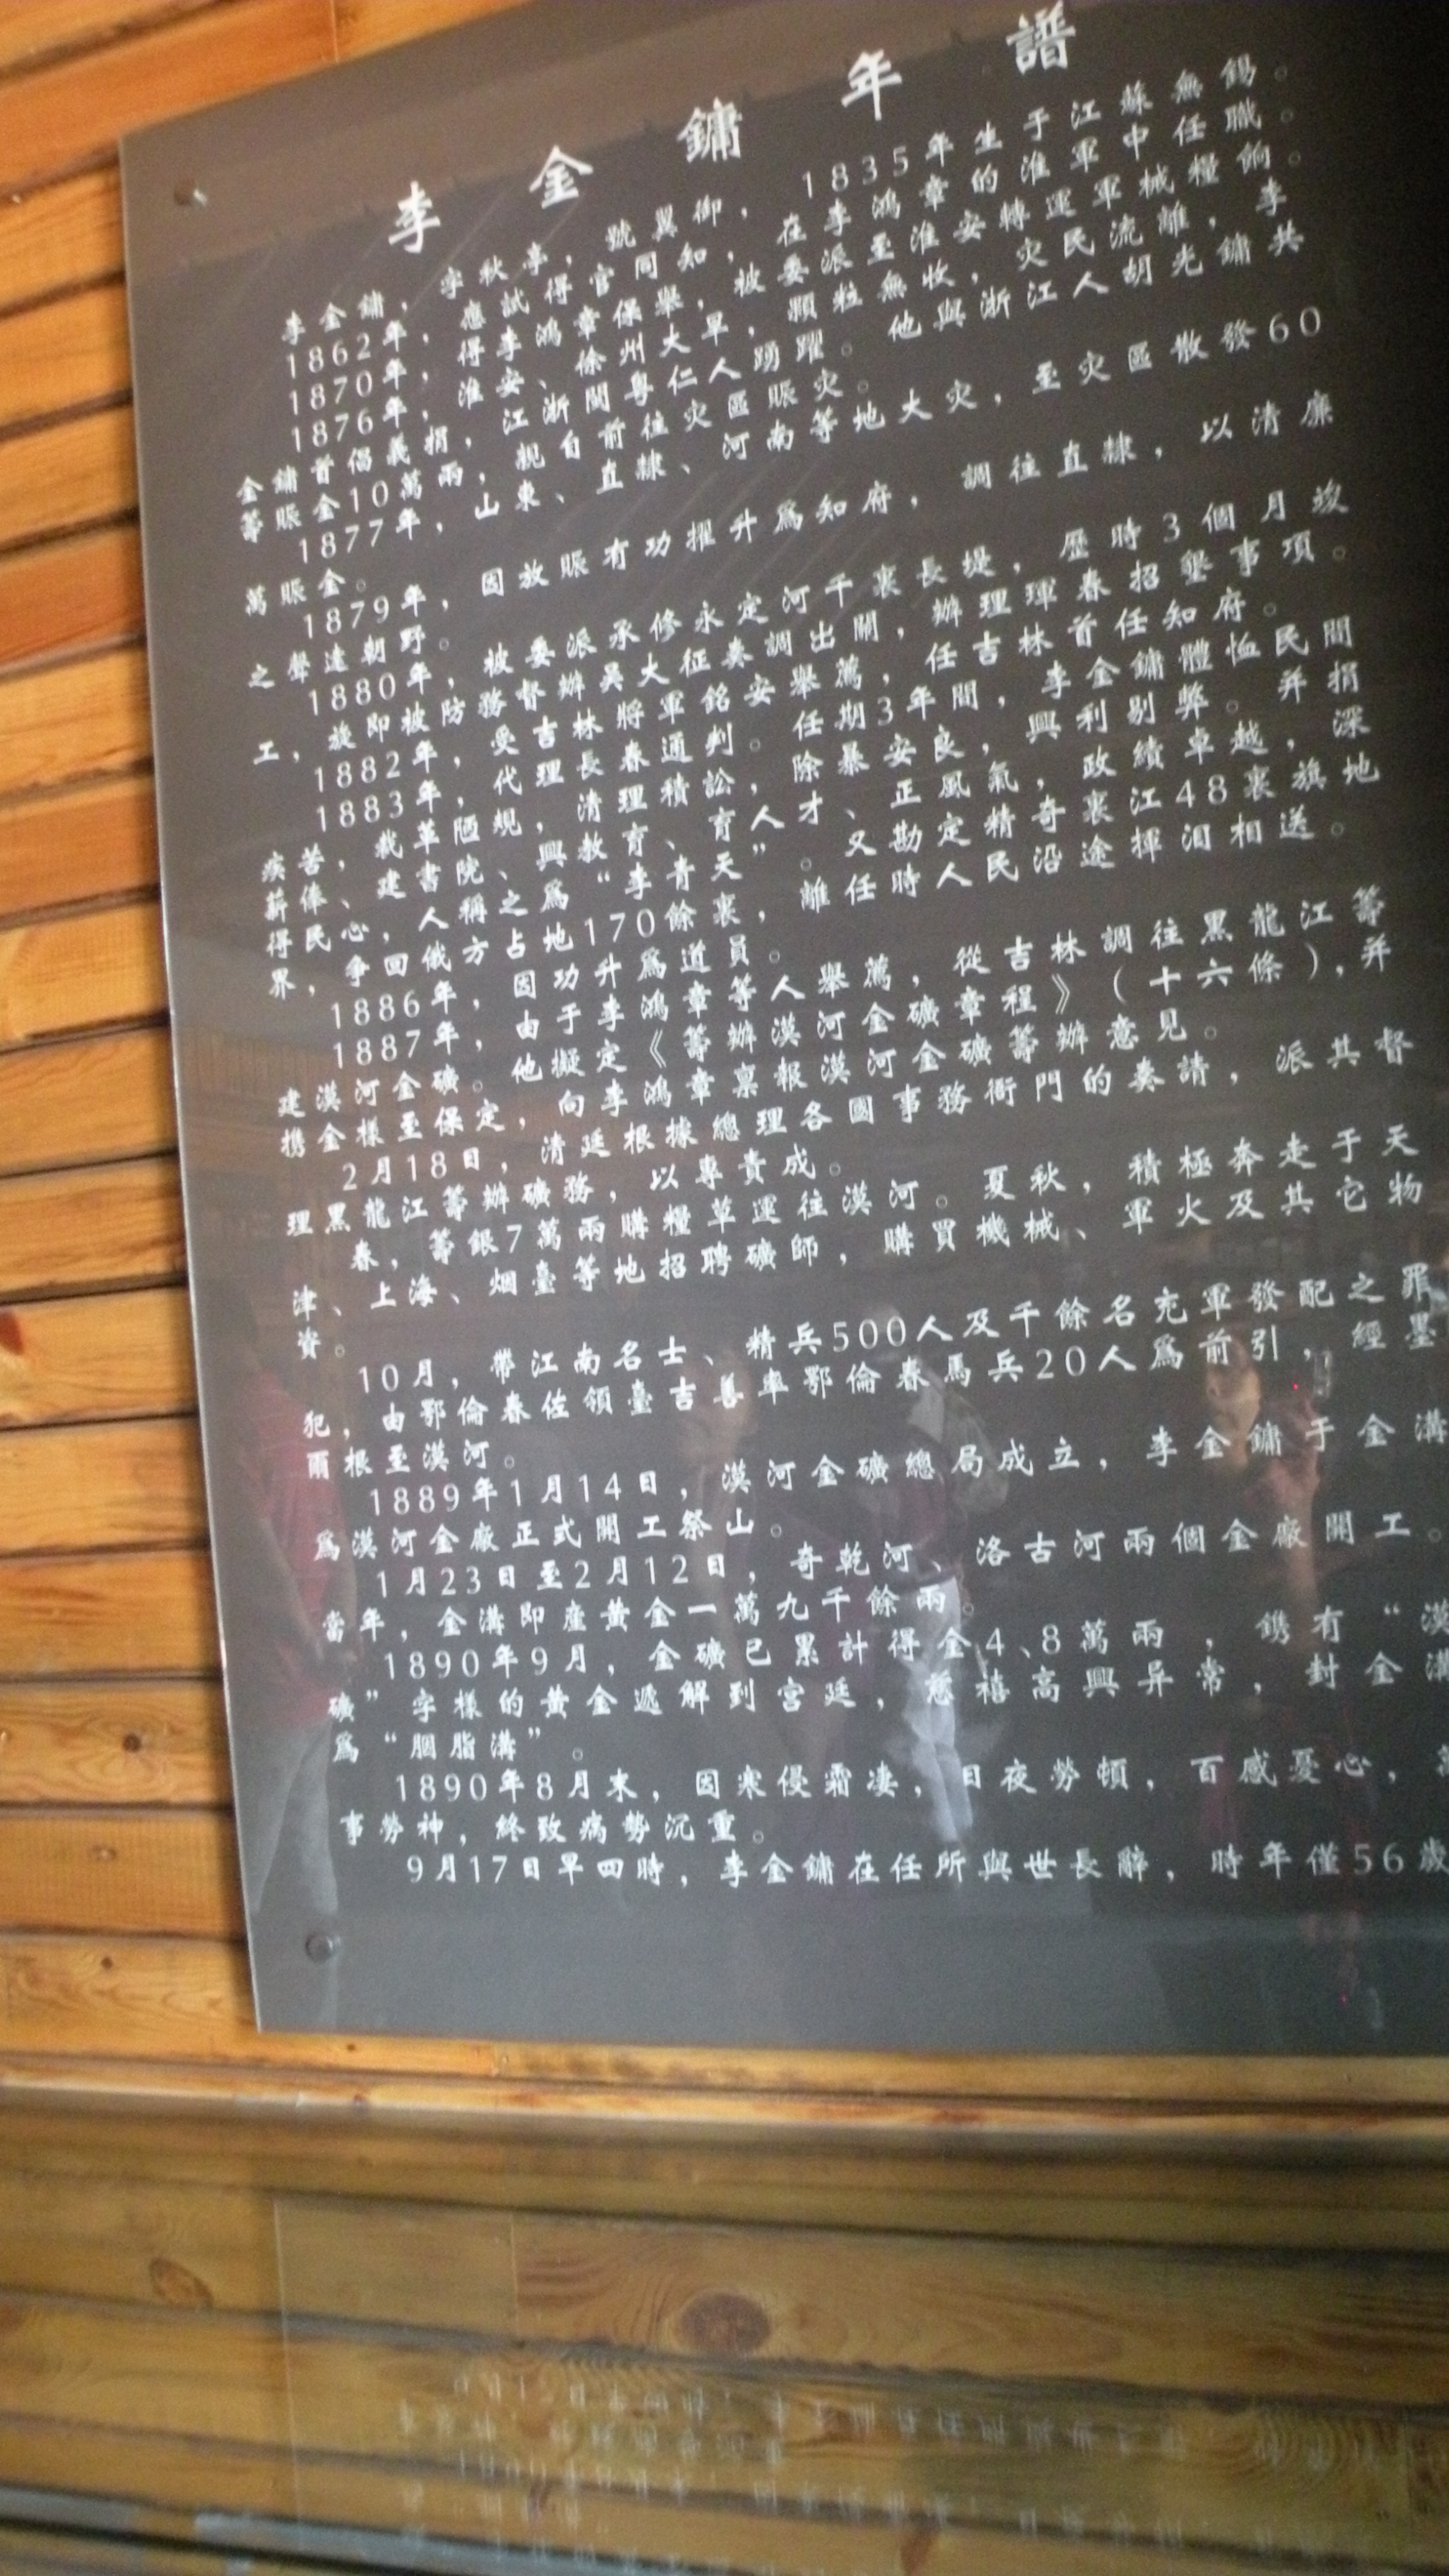 李金鏞年譜
李金鏞，字秋亭，號翼御，1835年生于江蘇無錫。
1862年，應試得官同知，在李鴻章的淮軍中任職。
1870年，得李鴻章保舉，被委派至淮安轉運軍械糧餉。
1876年，淮安、徐州大旱，顆粒無收，灾民流離，李
金鏞首倡義捐，江浙閩粵仁人踴躍。他與浙江人胡光鏞共
籌賑金10萬兩，親自前往灾區賑灾。
1877年，山東、直隸、河南等地大灾，至灾區散發60
萬賑金。
1879年，因放賑有功擢升爲知府，調往直隸，以清廉
之聲遠朝野。
1880年，被委派承修永定河千裏長堤，歷時3個月竣
工，旋即被防務督辦吳大征奏調出關，辦理琿春招墾事項。
1882年，受吉林將軍銘安舉薦，任吉林首任知府。
1883年，代理長春通判。任期3年間，李金鏞體恤民間
疾苦，裁革陋規，清理積訟，除暴安良，興利剔弊。并捐
薪俸、建書院、興教育、育人才、正風氣，政績卓越，深
得民心，人稱之爲“李青天”。又勘定精奇裏江48裏旗地
界，爭回俄方占地170餘裏，離任時人民沿途揮泪相送。
1886年，因功升爲道員。
1887年，由于李鴻章等人舉薦，從吉林調往黑龍江籌
建漠河金礦。他擬定《籌辦漠河金礦章程》（十六條），并
携金樣至保定，向李鴻章禀報漠河金礦籌辦意見。
2月18日，清廷根據總理各國事務衙門的奏請，派其督
理黑龍江籌辦礦務，以專責成。
春，籌銀7萬兩購糧草運往漠河。夏秋，積極奔走于天
津、上海、烟臺等地招聘礦師，購買機械、軍火及其它物
資。
10月，帶江南名士、精兵500人及千餘名充軍發配之罪
犯，由鄂倫春佐領臺吉善率鄂倫春馬兵20人爲前引，經墨
爾根至漠河。
1889年1月14日，漠河金礦總局成立，李金鏞于金溝
爲漠河金廠正式開工祭山。
1月23日至2月12日，奇乾河、洛古河兩個金廠開工。
當年，金溝即産黄金一萬九千餘兩。
1890年9月，金礦已累計得金4、8萬兩，鎸有“漠
礦”字樣的黄金遞解到宮廷，慈禧高興异常，封金溝
爲“胭脂溝”。
1890年8月末，因寒侵霜凄，日夜勞頓，百感憂心，萬
事勞神，終致病勢沉重。
9月17日早四時，李金鏞在任所與世長辭，時年僅56歲